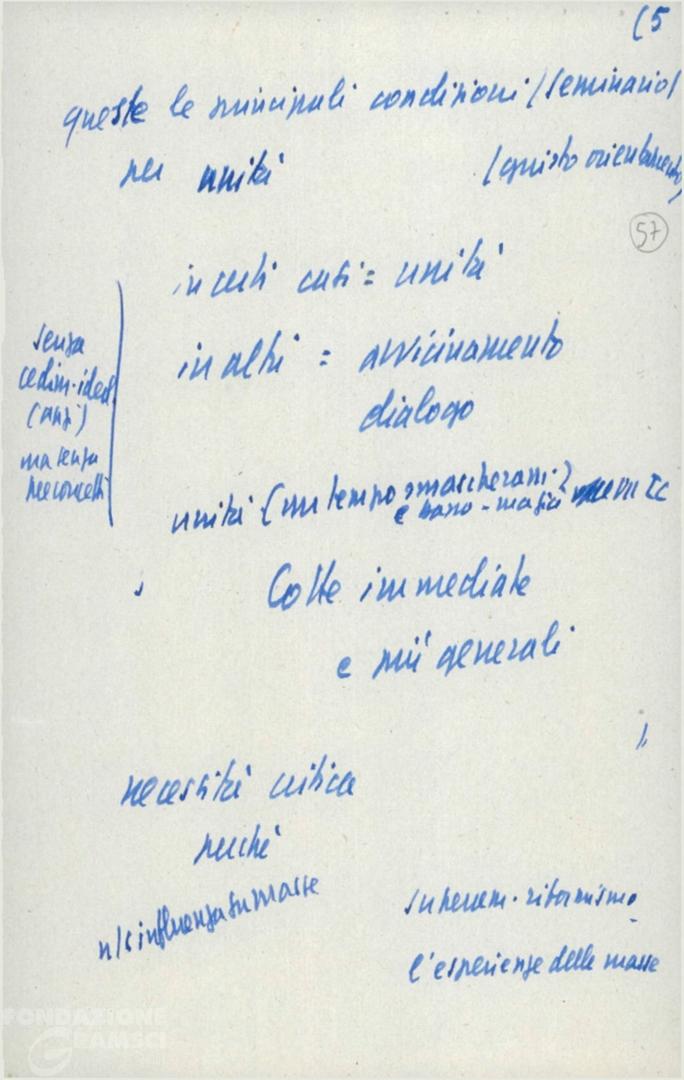 (5
queste le principali condizioni (seminario)
per unità (giusto orientamento)
57
in certi casi = unità
in altri = avvicinamento
dialogo
senza
cedim. ideol.
(anzi)
ma senza
preconcetti
unità (un tempo smascheram.)
e
Lotte immediate
e più generali
necessità critica
perché
n/s influenza su masse
superam. riformismo
l'esperienze delle masse
FONDAZIONE
GRAMSCI